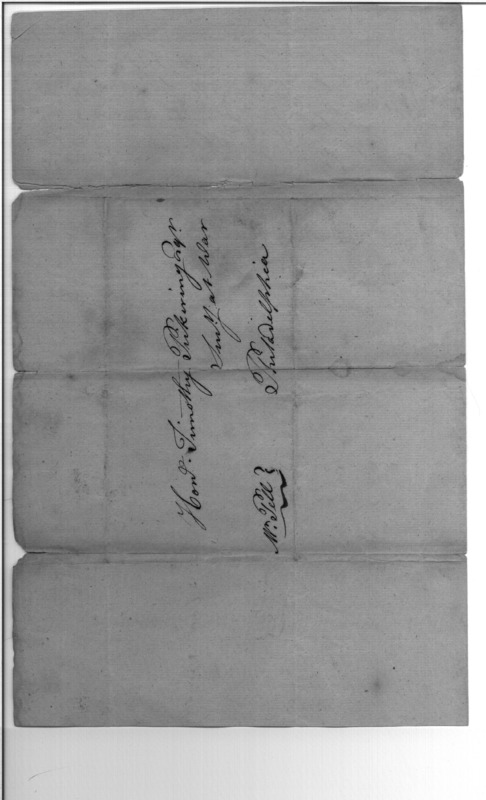 Honᵈ. Timothy Pickering Esqr.
Secy. at War
Philadelphia
Mr. Till